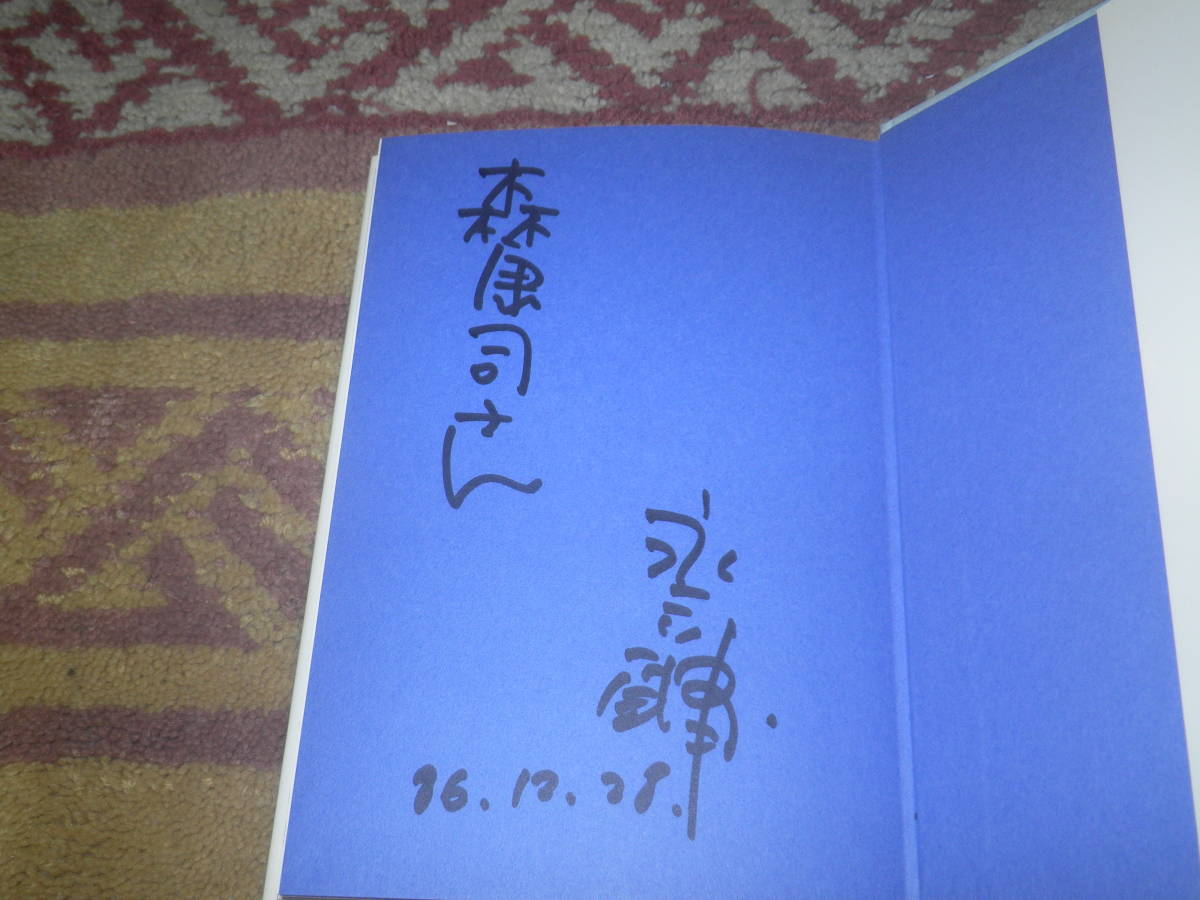 森康司さん
永六輔
86.12.28.